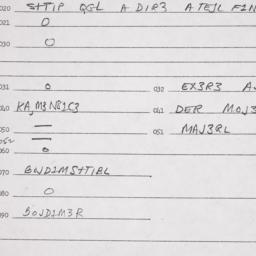 020 SHTIP QGL A DIR3 A TEJL FIN
021 0
030 0
031 0 032 EX3R3 A
040 KAJM3NGIC3 041 DER MOJ3
050 — 051 MAJ3RL
052 —
060 0
070 GNDIMSHTIBL
080 0
090 BOJDIM3R